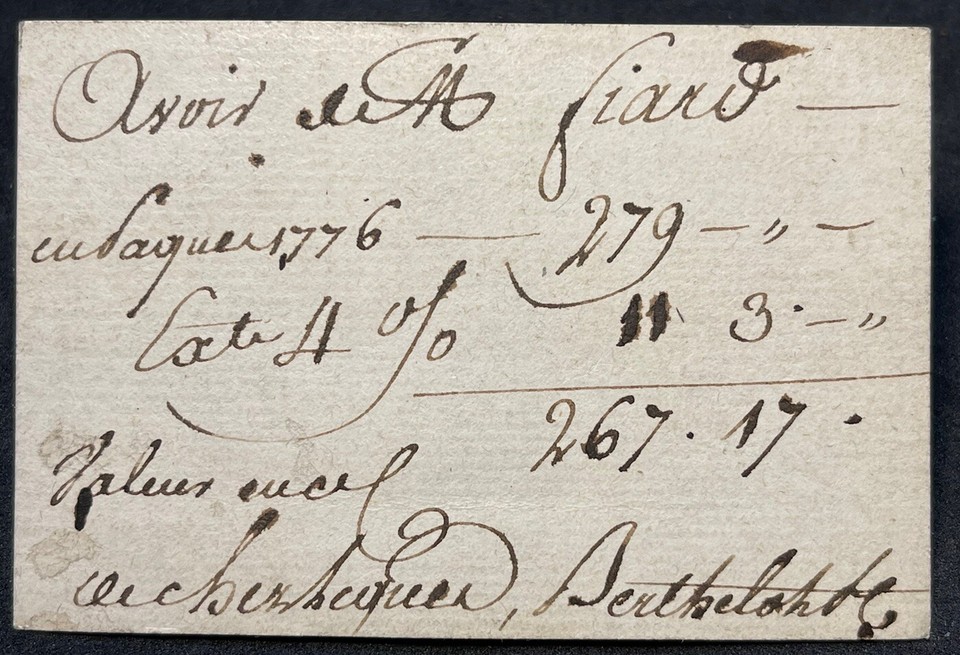 Avoir de M fiard —
en Paques 1776 — 279 — " —
Exte 4 % 11 3 · — "
267 · 17 ·
Valeur en
de chez, Berthelot